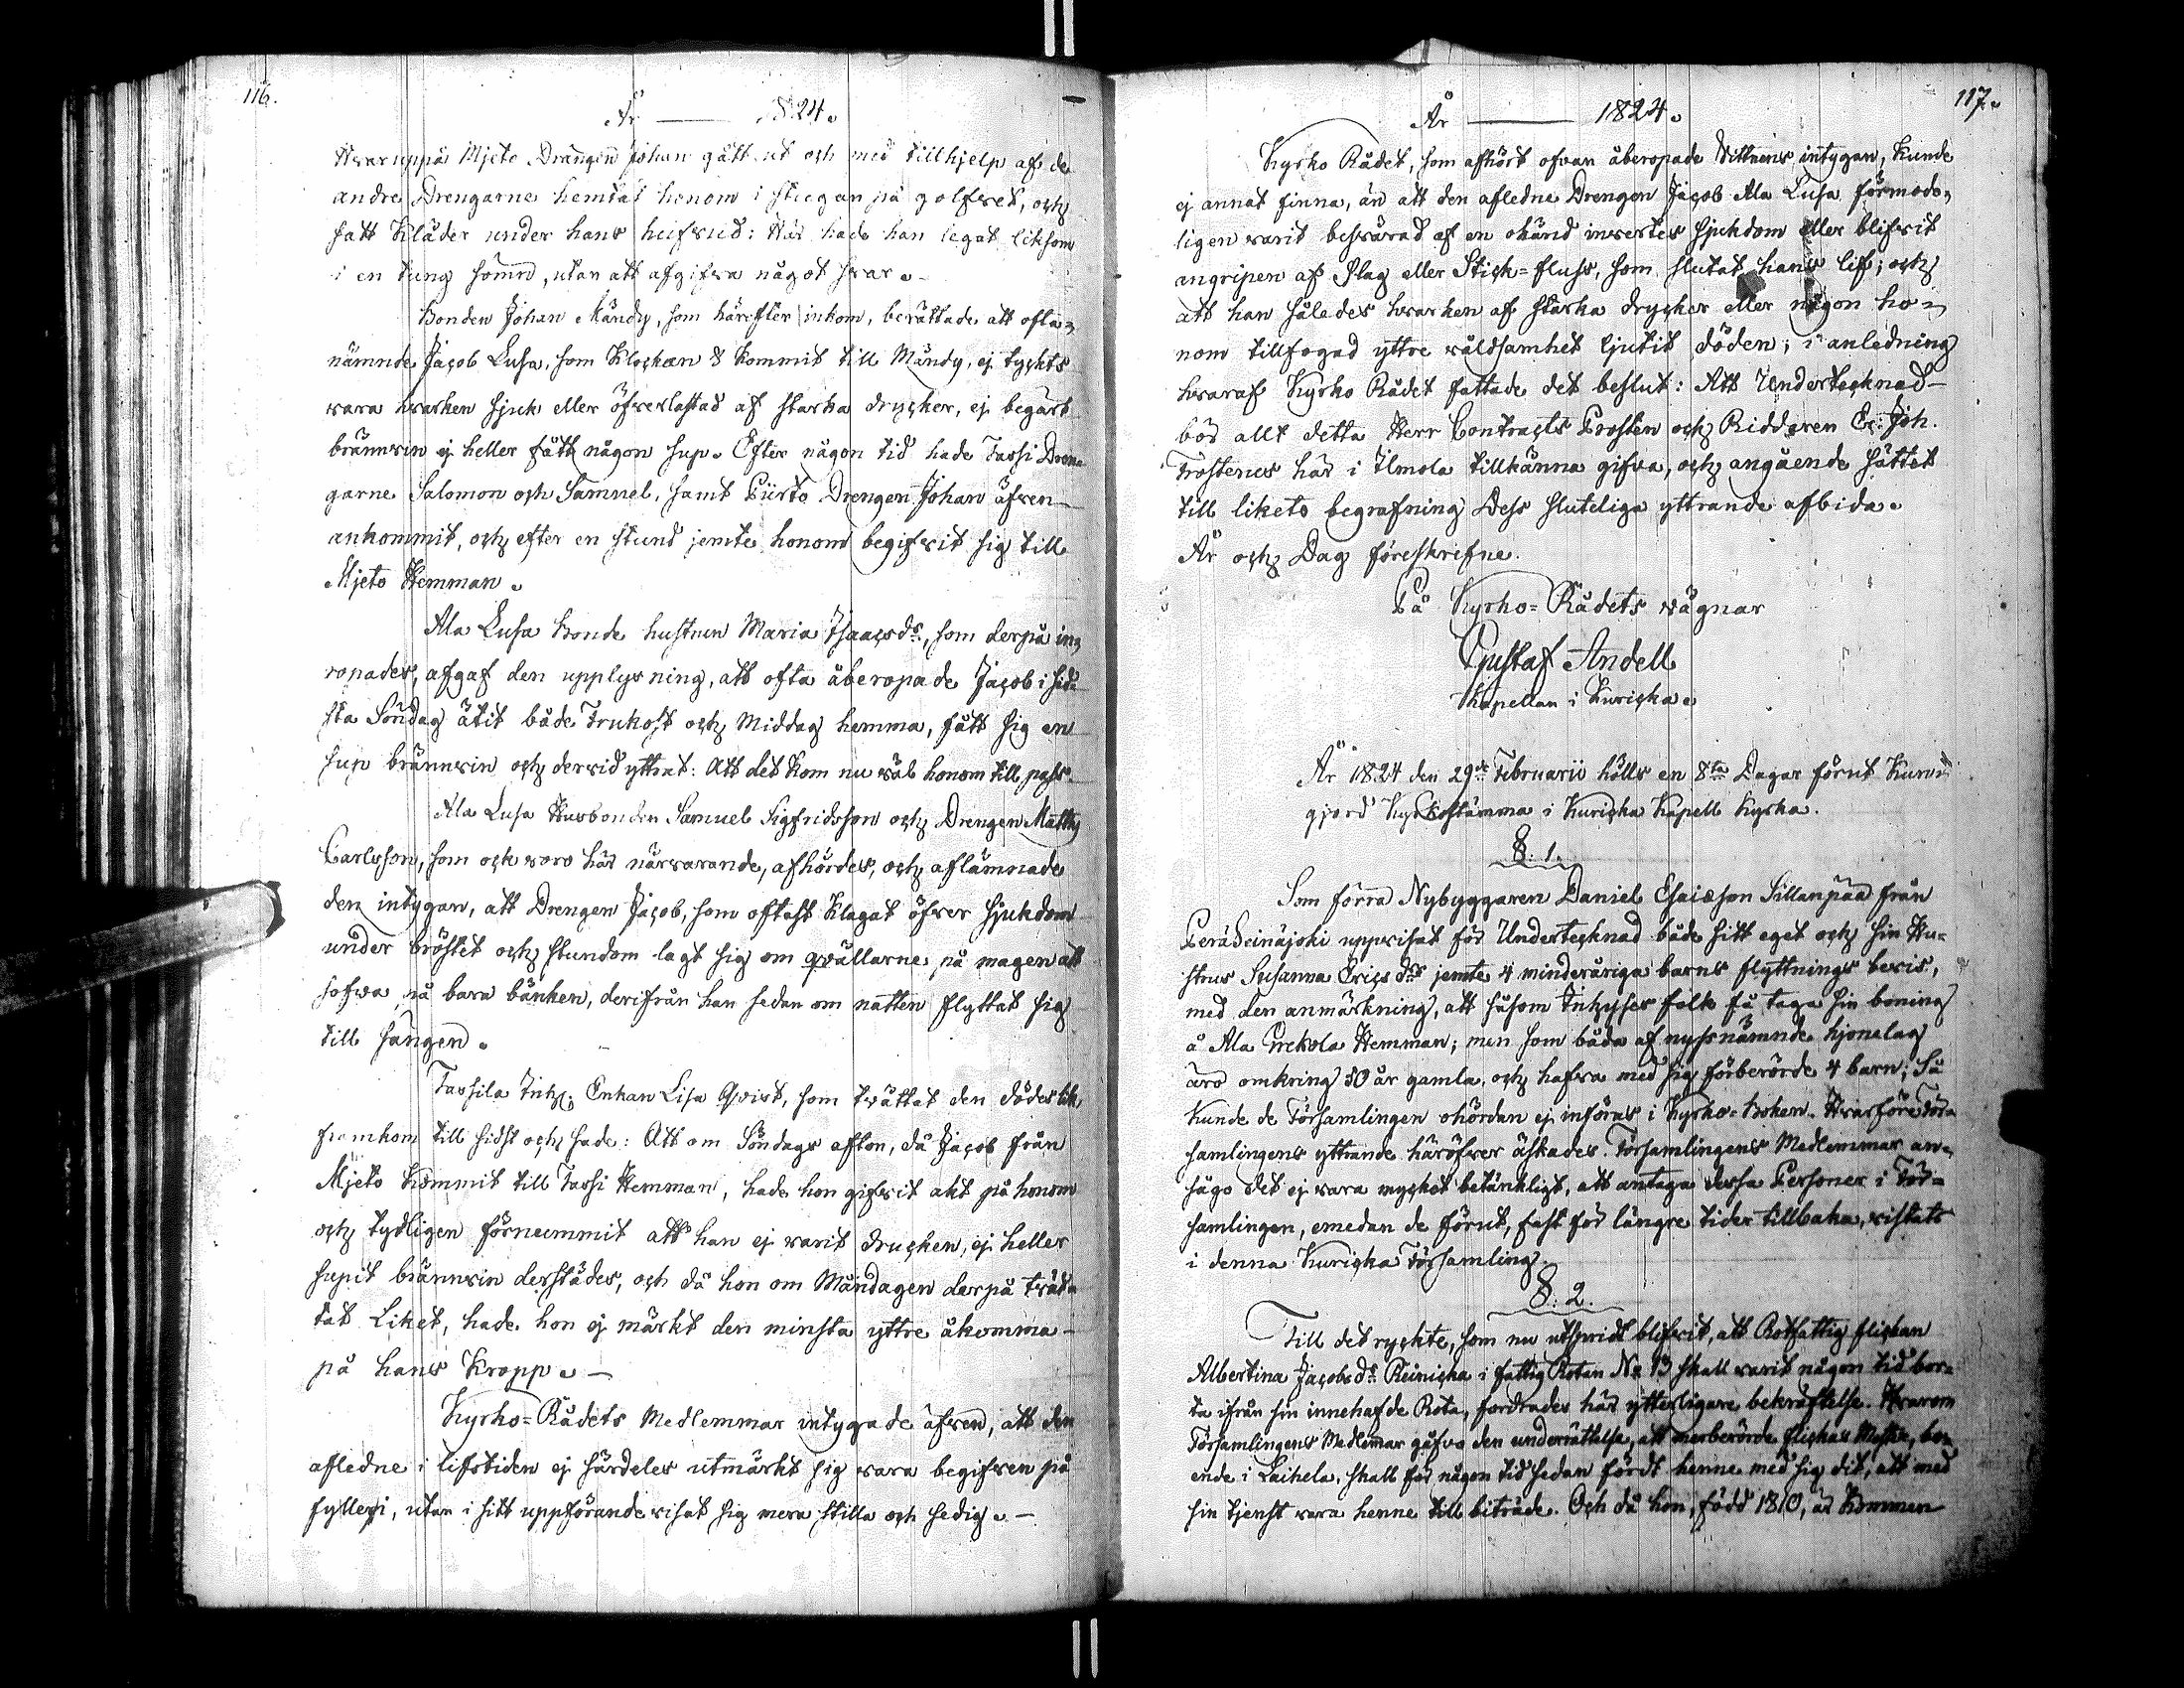 116.
År — 1824.
Hvaruppå Mjeto Drängen Johan gått ut och med tillhjelp af de
andra Drengarne hemtat honom i stugan på golfvet, och
satt Kläder under hans hufvud: Här hade han legat liksom
i en tung sömn, utan att afgifva något svar. –
Bonden Johan Mändy, som härefter inkom, berättade att ofta-
nämnde Jacob Lusa, som Klockan 8 kommit till Mändy, ej tyckts
vara hvarken sjuk eller öfverlastad af starka drycker, ej begärt
brännvin ej heller fått någon sup. Efter någon tid hade Tassi Dren-
garne Salomon och Samuel, samt Piirto Drengen Johan äfven
ankommit, och efter en stund jemte honom begifvit sig till
Mjeto Hemman.
Ala Lusa Bonde hustrun Maria Isaacsdr., som derpå in-
ropades, afgaf den upplysning, att ofta åberopade Jacob i sid-
sta Söndag ätit både Frukost och Middag hemma, fått sig en
sup brännvin och dervid yttrat: Att det kom nu väl honom till pass.
Ala Lusa Husbonden Samuel Sigfridsson och Drengen Matts
Carlsson, som ock voro här närvarande, afhördes, och aflämnade
den intygan, att Drengen Jacob, som oftast Klagat öfver sjukdom
under bröstet och stundom lagt sig om qvällarne på magen att
sofva på bara bänken, derifrån han sedan om natten flyttat sig
till sängen.
Tassila Inh: Enkan Lisa Qvist, som tvättat den dödes lik,
framkom till sidst och sade: Att om Söndags afton, då Jacob från
Mjeto kommit till Tassi Hemman, hade hon gifvit akt på honom
och tydligen förnummit att han ej varit drucken, ej heller
supit brännvin derstädes, och då hon om Måndagen derpå tvät-
tat Liket, hade hon ej märkt den minsta yttre åkomma –
på hans Kropp. –
Kyrko-Rådets Medlemmar intygade äfven, att den
afledne i lifstiden ej särdeles utmärkt sig vara begifven på
fylleri, utan i sitt uppförande visat sig mera stilla och sedig. –
117.
År — 1824.
Kyrko Rådet, som afhört ofvan åberopade Vittnens intygan, kunde
ej annat finna, än att den afledne Drengen Jacob Ala Lusa förmode-
ligen varit besvärad af en okänd invertes sjukdom eller blifvit
angripen af Slag eller Stick-fluss, som slutat hans lif; och
att han således hvarken af starka drycker eller någon ho-
nom tillfogad yttre våldsamhet ljutit döden; i anledning
hvaraf Kyrko Rådet fattade det beslut: Att Undertecknad –
bör allt detta Herr Contracts Prosten och Riddaren Er: Joh.
Frosterus här i Ilmola tillkänna gifva, och angående sättet
till likets begrafning Dess sluteliga yttrande afbida.
År och Dag föreskrifne.
På Kyrko-Rådets vägnar
Gustaf Andell
Kapellan i Kuricka.
År 1824 den 29de Februarii hölls en 8ta Dagar förut Kun-
gjord Kyrkostämma i Kuricka Kapell Kyrka.
§. 1.
Som förra Nybyggaren Daniel Esaiæson Sillanpää från
Peräseinäjoki uppvisat för Undertecknad både sitt eget och sin Hu-
strus Susanna Ericsdrs jemte 4 minderåriga barns flyttnings bevis,
med den anmärkning, att såsom Inhyses folk få taga sin boning
å Ala Prekola Hemman; men som båda af nyssnämnde hjonelag
äro omkring 50 år gamla, och hafva med sig förberörde 4 barn; Så
kunde de Församlingen ohördan ej införas i Kyrko-boken. Hvarföre För-
samlingens yttrande häröfver äskades. Församlingens Medlemmar an-
sågo det ej vara mycket betänkligt, att antaga dessa Personer i För-
samlingen, emedan de förut, fast för längre tider tillbaka, vistats
i denna Kuricka Församling.
§. 2.
Till det ryckte, som nu utspridt blifvit, att Rotfattig flickan
Albertina Jacobsdr. Reinicka i fattig Rotan No 13 skall varit någon tid bor-
ta ifrån sin innehafde Rota, fordrades här ytterligare bekräftelse. Hvarom
Församlingens Medlemmar gåfvo den underrättelse, att merberörde flickas Moster, bo-
ende i Laihela, skall för någon tid sedan fördt henne med sig dit, att med
sin tjenst vara henne till biträde. Och då hon, född 1810, är kommen